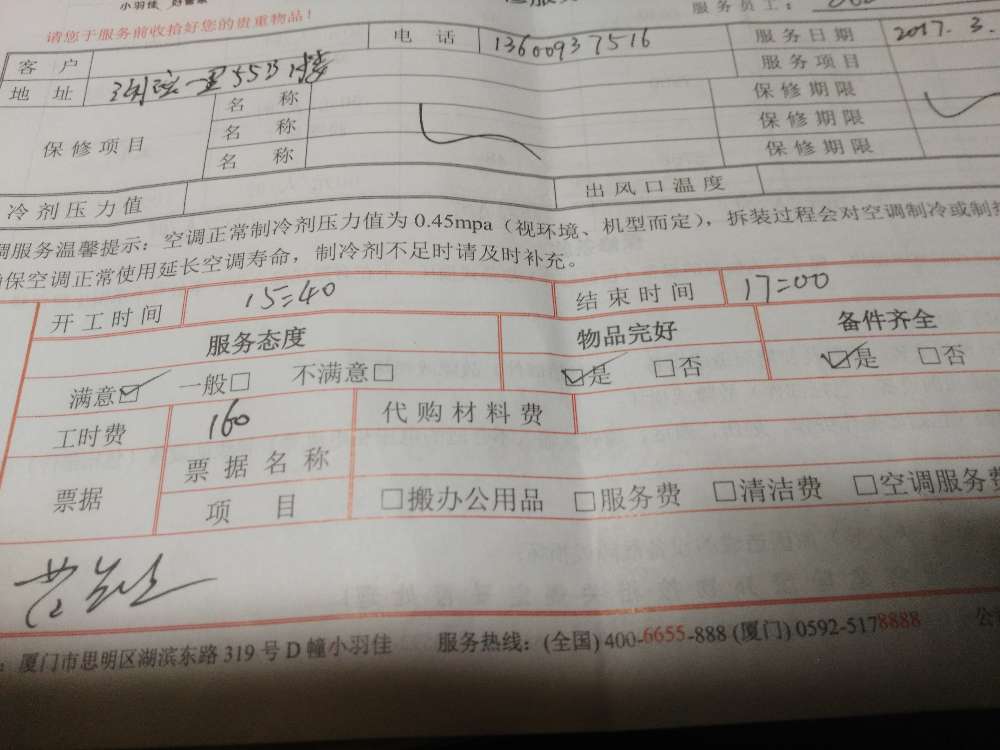 小羽佳
服务员工：
请您于服务前收拾好您的贵重物品！
客 户 电 话 13600937516 服务日期 2017.3.
地 址 一里55 服务项目
保修项目 名 称 保修期限
名 称 保修期限
名 称 保修期限
冷剂压力值 出风口温度
调服务温馨提示：空调正常制冷剂压力值为 0.45mpa（视环境、机型而定），拆装过程会对空调制冷或制热
确保空调正常使用延长空调寿命，制冷剂不足时请及时补充。
开工时间 15=40 结束时间 17=00
服务态度 物品完好 备件齐全
满意☑ 一般□ 不满意□ ☑是 □否 ☑是 □否
工时费 160 代购材料费
票据 票据名称
项 目 □搬办公用品 □服务费 □清洁费 □空调服务费
：厦门市思明区湖滨东路 319 号 D 幢小羽佳 服务热线：(全国) 400-6655-888 (厦门) 0592-5178888